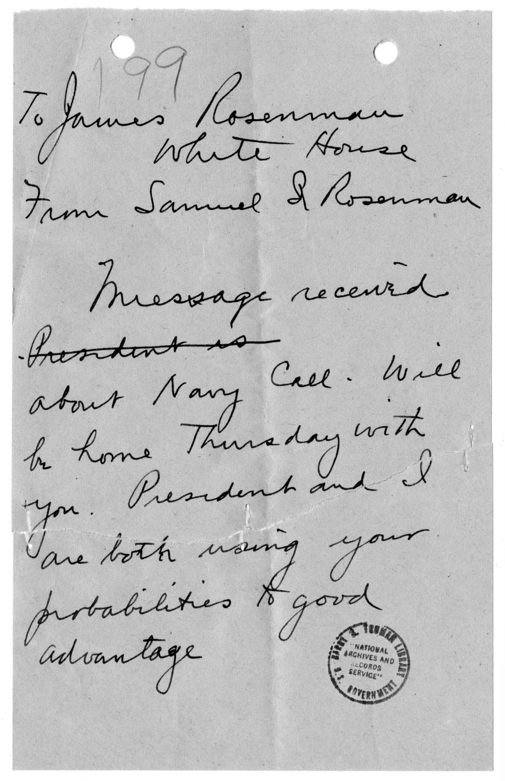 199
To James Rosenman
White House
From Samuel I Rosenman
Message received
President is
about Navy Call. Will
be home Thursday with
you. President and I
are both using your
probabilities to good
advantage
HARRY S. TRUMAN LIBRARY
"NATIONAL
ARCHIVES AND
RECORDS
SERVICE"
U.S. GOVERNMENT